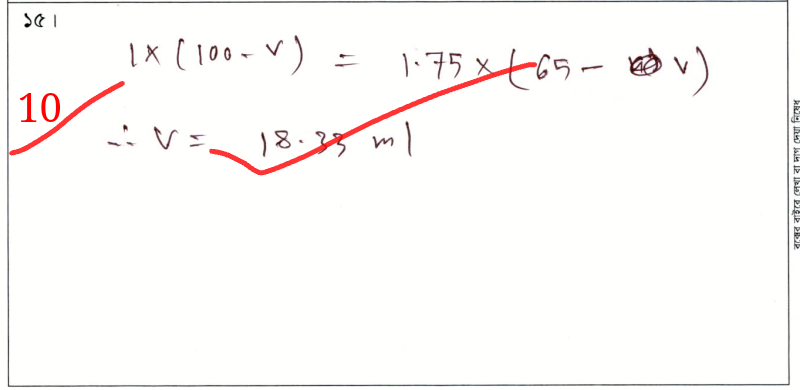 ১৫।
1 × (100 - V) = 1.75 × (65 - V)
10
∴ V = 18.33 ml
বক্সের বাইরে লেখা বা দাগ দেয়া নিষেধ